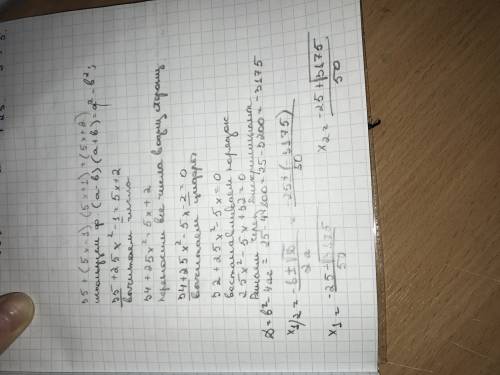 35 + (5x-1)·(5x+1) = (5x+2)
используем ф (a-b)(a+b) = a² - b²;
35 + 25x² - 1 = 5x + 2
вычитаем числа
34 + 25x² = 5x + 2
переносим все числа в одну сторону
34 + 25x² - 5x - 2 = 0
вычитаем цифры
32 + 25x² - 5x = 0
восстанавливаем порядок
25x² - 5x + 32 = 0
Решаем через дискриминант
D = b² - 4ac = 25 - 3200 = -3175
x1/2 = (-b ± √D)/2a = -25±(-3175)/50
x1 = -25-√3175/50
x2 = -25+√3175/50